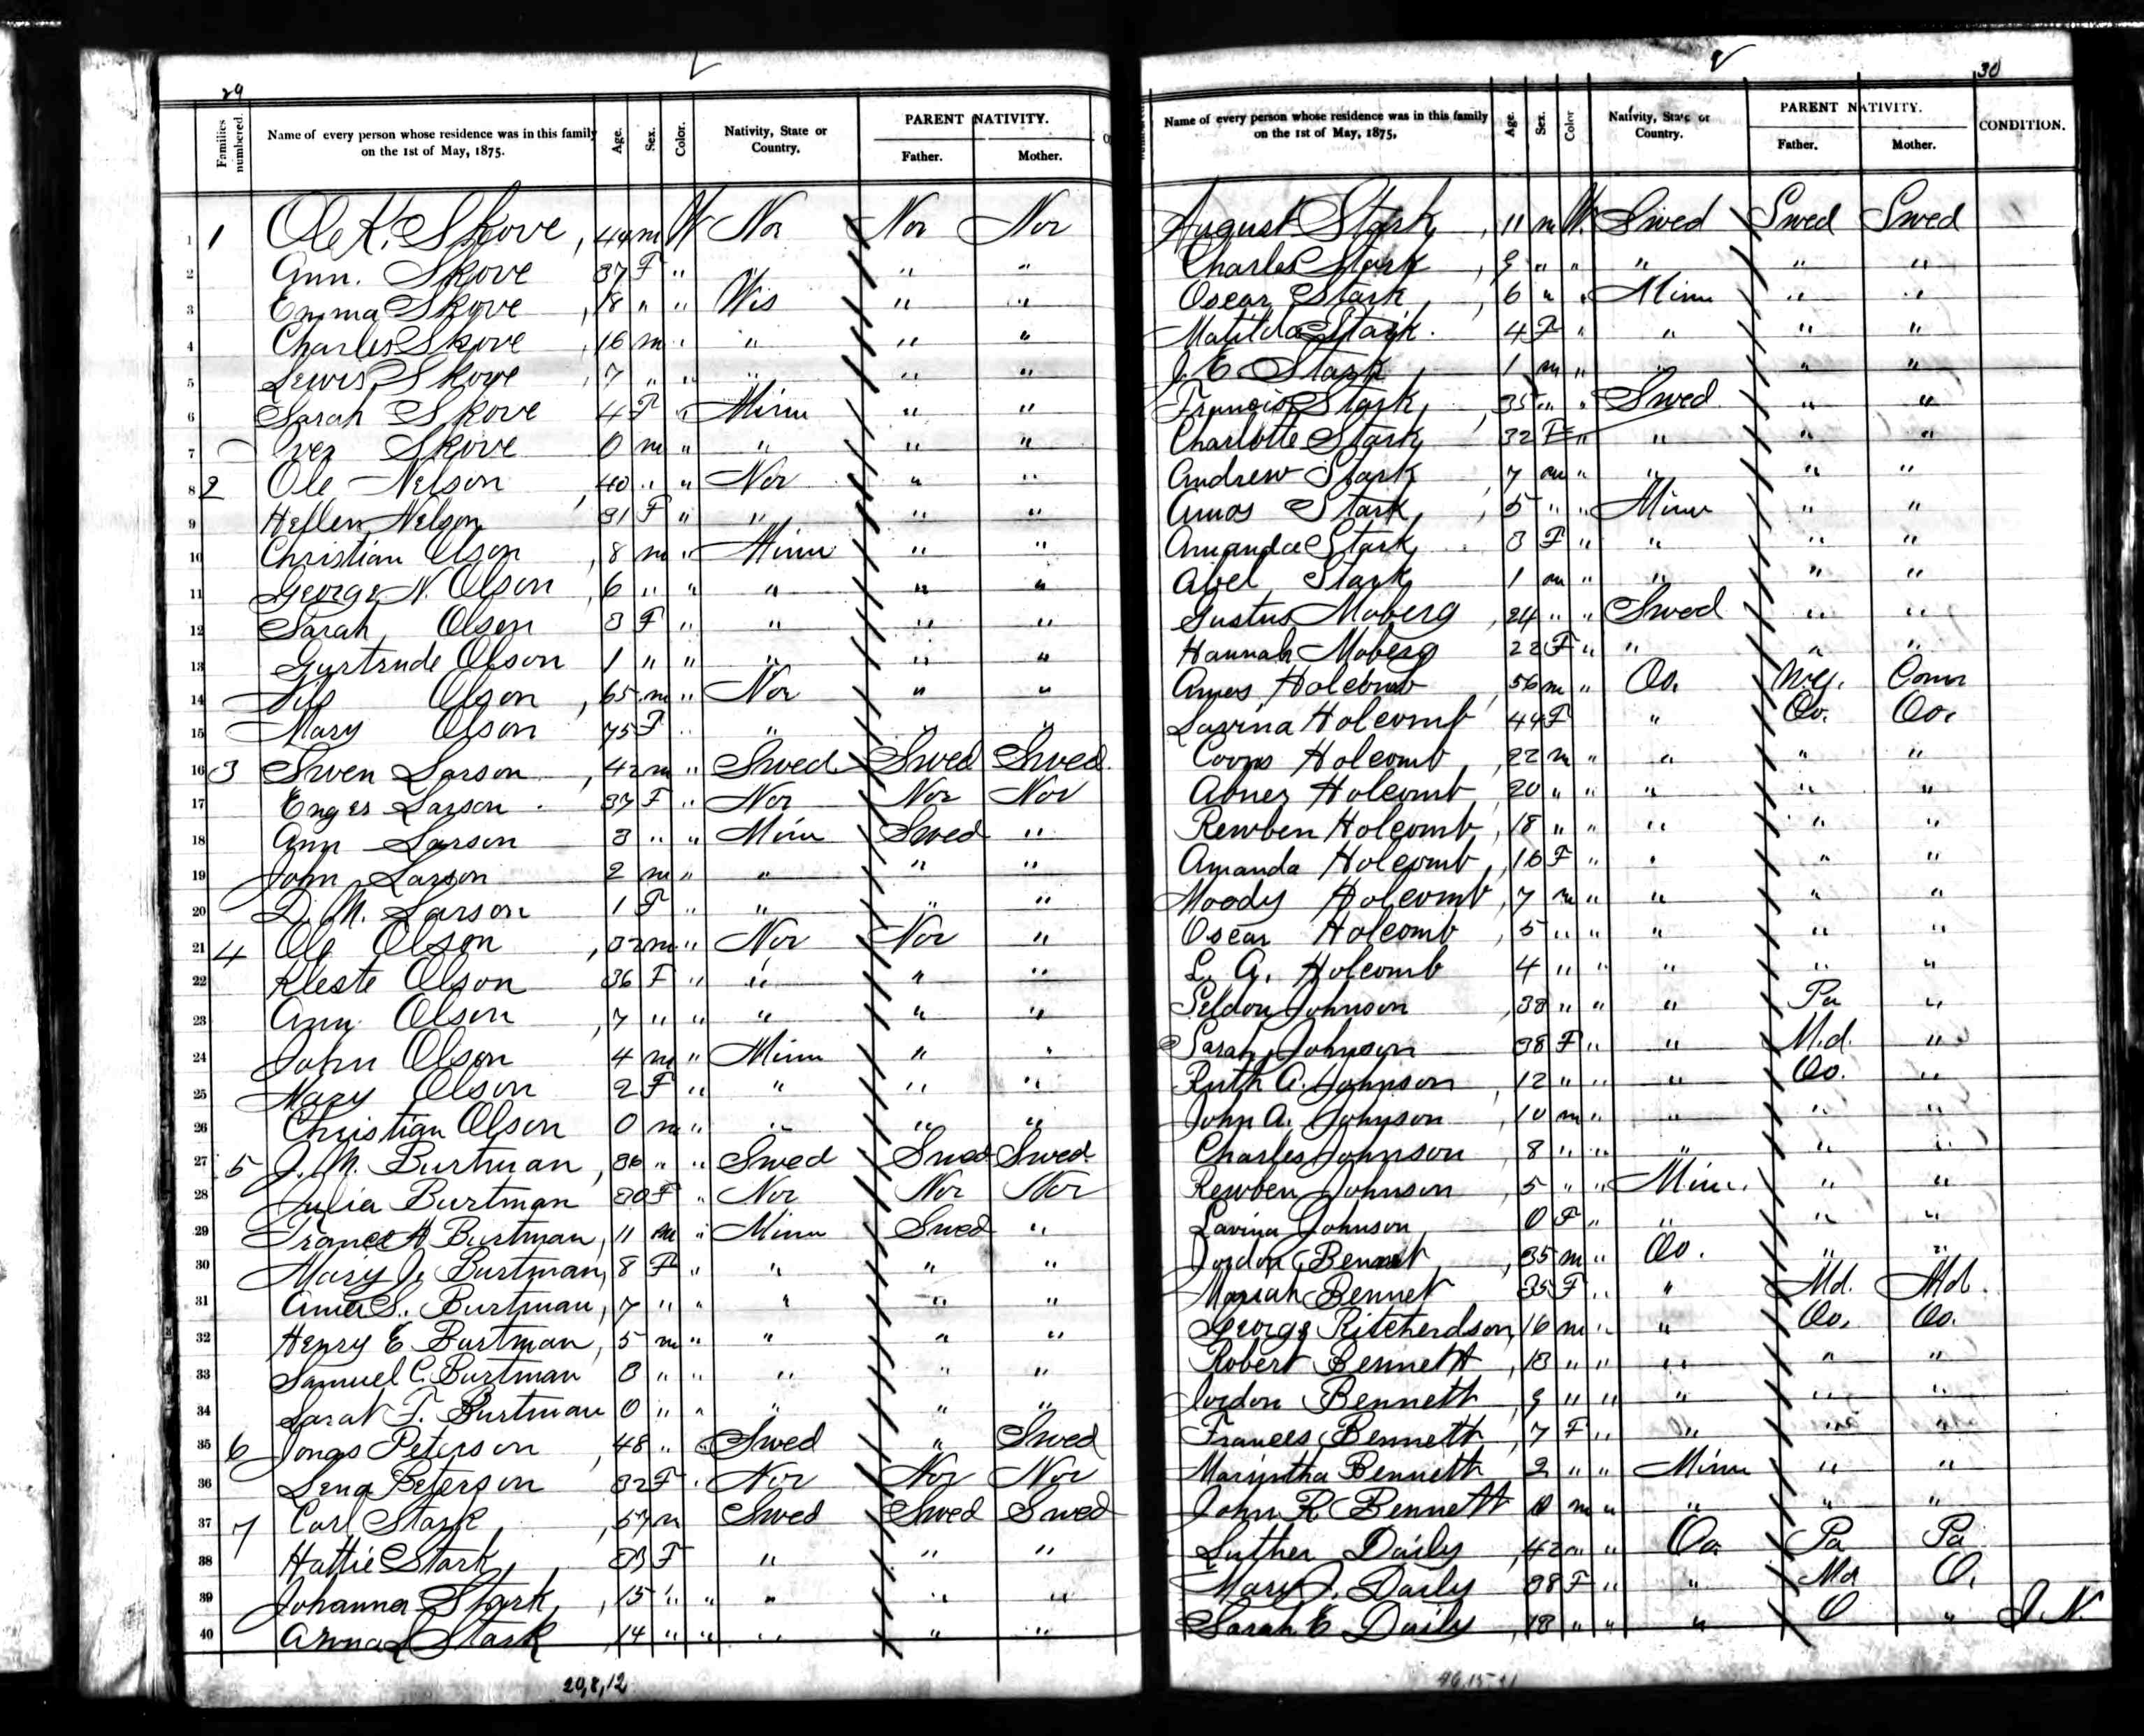 29
Families numbered. Name of every person whose residence was in this family on the 1st of May, 1875. Age. Sex. Color. Nativity, State or Country. PARENT NATIVITY. Father. Mother.
1 1 Ole K. Skove, 44 m W Nor Nor Nor
2 Ann. Skove 37 F " " " "
3 Emma Skove, 18 " " Wis " "
4 Charles Skove, 16 m " " " "
5 Lewis Skove, 7 " " " " "
6 Sarah Skove 4 F " Minn " "
7 Iver Skove 0 m " " " "
8 2 Ole Nelson, 40 " " Nor " "
9 Hellen Nelson 31 F " " " "
10 Christian Olson, 8 m " Minn " "
11 George N. Olson, 6 " " " " "
12 Sarah Olson 3 F " " " "
13 Gurtrude Olson 1 " " " " "
14 Nils Olson, 65 m " Nor " "
15 Mary Olson 75 F " " " "
16 3 Swen Larson, 42 m " Swed Swed Swed
17 Enger Larson 37 F " Nor Nor Nor
18 Ann Larson 3 " " Minn Swed "
19 John Larson 2 m " " " "
20 D. M. Larson 1 F " " " "
21 4 Ole Olson, 32 m " Nor Nor "
22 Kleste Olson 36 F " " " "
23 Ann Olson, 7 " " " " "
24 John Olson 4 m " Minn " "
25 Mary Olson 2 F " " " "
26 Christian Olson 0 m " " " "
27 5 J. M. Burtman, 36 " " Swed Swed Swed
28 Julia Burtman 30 F " Nor Nor Nor
29 France A Burtman, 11 m " Minn Swed "
30 Mary J. Burtman, 8 F " " " "
31 Anna S. Burtman, 7 " " " " "
32 Henry E Burtman, 5 m " " " "
33 Samuel C. Burtman 3 " " " " "
34 Sarah T. Burtman 0 " " " " "
35 6 Jonas Peterson, 48 " " Swed " Swed
36 Lena Peterson 32 F " Nor Nor Nor
37 7 Carl Stark, 57 m Swed Swed Swed
38 Hattie Stark 33 F " " "
39 Johanna Stark, 15 " " " " "
40 Anna Stark, 14 " " " " "
20,8,12
30
Name of every person whose residence was in this family on the 1st of May, 1875, Age. Sex. Color Nativity, State or Country. PARENT NATIVITY. Father. Mother. CONDITION.
August Stark, 11 m W Swed Swed Swed
Charles Stark, 9 " " " " "
Oscar Stark, 6 " " Minn " "
Matilda Stark. 4 F " " " "
J. E. Stark 1 m " " " "
Francis Stark, 35 " " Swed " "
Charlotte Stark 32 F " " " "
Andrew Stark, 7 m " " " "
Amos Stark, 5 " " Minn " "
Amanda Stark 3 F " " " "
Abel Stark 1 m " " " "
Gustus Moberg, 24 " " Swed " "
Hannah Moberg 22 F " " " "
Ames Holcomb, 56 m " Oo. N.y. Conn
Lavina Holcomb 44 F " Oo. Oo.
Holcomb, 22 m " " " "
Abner Holcomb, 20 " " " " "
Rewben Holcomb, 18 " " " " "
Amanda Holcomb, 16 F " " " "
Moody Holcomb, 7 m " " " "
Oscar Holcomb, 5 " " " " "
L. A. Holcomb 4 " " " " "
Seldon Johnson, 38 " " " Pa "
Sarah Johnson 38 F " " M.d. "
Ruth A. Johnson, 12 " " " Oo. "
John A. Johnson, 10 m " " " "
Charles Johnson, 8 " " " " "
Rewben Johnson, 5 " " Minn. " "
Lavina Johnson 0 F " " " "
Jordon Bennet, 35 m " Oo. " "
Mariah Bennet 35 F " " Md. Md.
George Ritcherdson, 16 m " " Oo. Oo.
Robert Bennett, 13 " " " " "
Jordon Bennett, 9 " " " " "
Frances Bennett, 7 F " " " "
Marintha Bennett 2 " " Minn " "
John R. Bennett 0 m " " " "
Luther Daily, 42 " " Oo. Pa Pa
Mary J. Daily 38 F " " Md O.
Sarah E Daily, 18 " " " O " J. N.